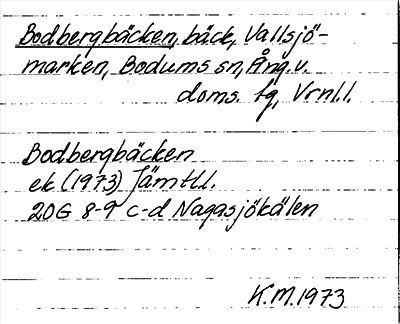 Bodbergbäcken, bäck, Vallsjö-
marken, Bodums sn, Ång. v.
doms. tg, Vrnl.l.
Bodbergbäcken
ek (1973) Jämtl.l.
20G 8-9 c-d Nagasjökälen
K.M. 1973